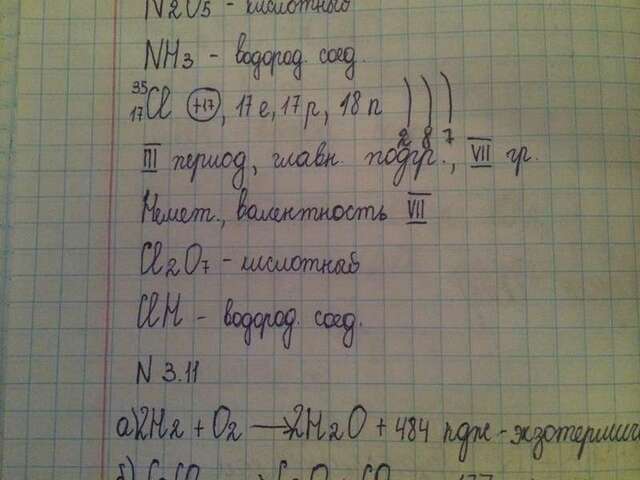 N2O5 - кислотный
NH3 - водород. соед.
35 17 Cl +17, 17e, 17p, 18n ) ) )
2 8 7
III период, главн. подгр., VII гр.
Немет., валентность VII
Cl2O7 - кислотный
ClH - водород. соед.
N 3.11
а) 2H2 + O2 → 2H2O + 484 кдж - экзотермич
б) CaCO